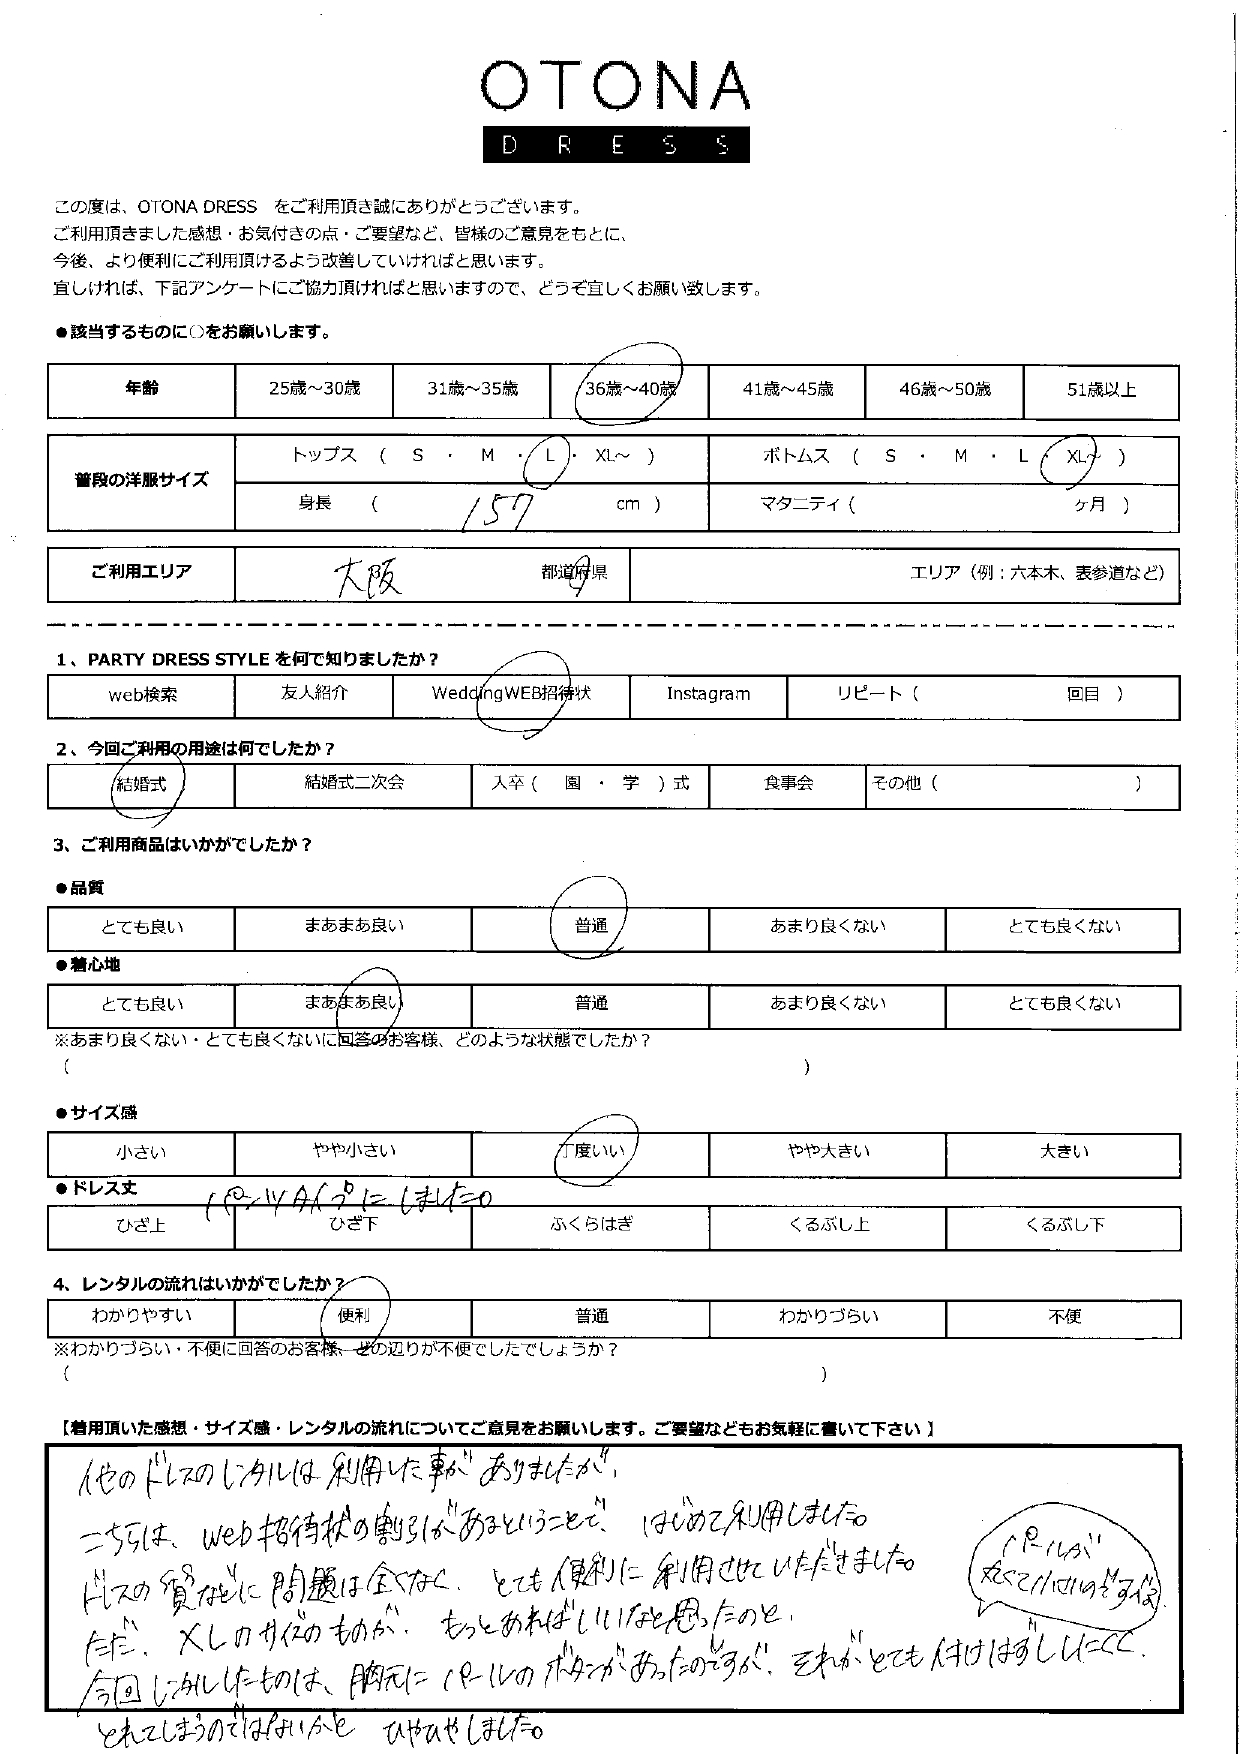 OTONA
DRESS
この度は、OTONA DRESS をご利用頂き誠にありがとうございます。
ご利用頂きました感想・お気付きの点・ご要望など、皆様のご意見をもとに、
今後、より便利にご利用頂けるよう改善していければと思います。
宜しければ、下記アンケートにご協力頂ければと思いますので、どうぞ宜しくお願い致します。
●該当するものに○をお願いします。
年齢 25歳～30歳 31歳～35歳 36歳～40歳 41歳～45歳 46歳～50歳 51歳以上
普段の洋服サイズ トップス ( S ・ M ・ L ・ XL～ ) ボトムス ( S ・ M ・ L ・ XL～ )
身長 ( 157 cm ) マタニティ ( ヶ月 )
ご利用エリア 大阪 都道府県 エリア（例：六本木、表参道など）
1、PARTY DRESS STYLE を何で知りましたか？
web検索 友人紹介 WeddingWEB招待状 Instagram リピート ( 回目 )
2、今回ご利用の用途は何でしたか？
結婚式 結婚式二次会 入卒 ( 園 ・ 学 ) 式 食事会 その他 ( )
3、ご利用商品はいかがでしたか？
●品質
とても良い まあまあ良い 普通 あまり良くない とても良くない
●着心地
とても良い まあまあ良い 普通 あまり良くない とても良くない
※あまり良くない・とても良くないに回答のお客様、どのような状態でしたか？
( )
●サイズ感
小さい やや小さい 丁度いい やや大きい 大きい
●ドレス丈
パンツタイプにしました。
ひざ上 ひざ下 ふくらはぎ くるぶし上 くるぶし下
4、レンタルの流れはいかがでしたか？
わかりやすい 便利 普通 わかりづらい 不便
※わかりづらい・不便に回答のお客様、どの辺りが不便でしたでしょうか？
( )
【着用頂いた感想・サイズ感・レンタルの流れについてご意見をお願いします。ご要望などもお気軽に書いて下さい】
他のドレスのレンタルは利用した事がありましたが、
こちらは、web招待状の割引があるということで、はじめて利用しました。
ドレスの質などに問題は全くなく、とても便利に利用させていただきました。
ただ、XLのサイズのものが、もっとあればいいなと思ったのと、
今回レンタルしたものは、胸元にパールのボタンがあったのですが、それがとても付けはずしにくく、
とれてしまうのではないかと ひやひやしました。
パールが
丸くて小さいのですべる